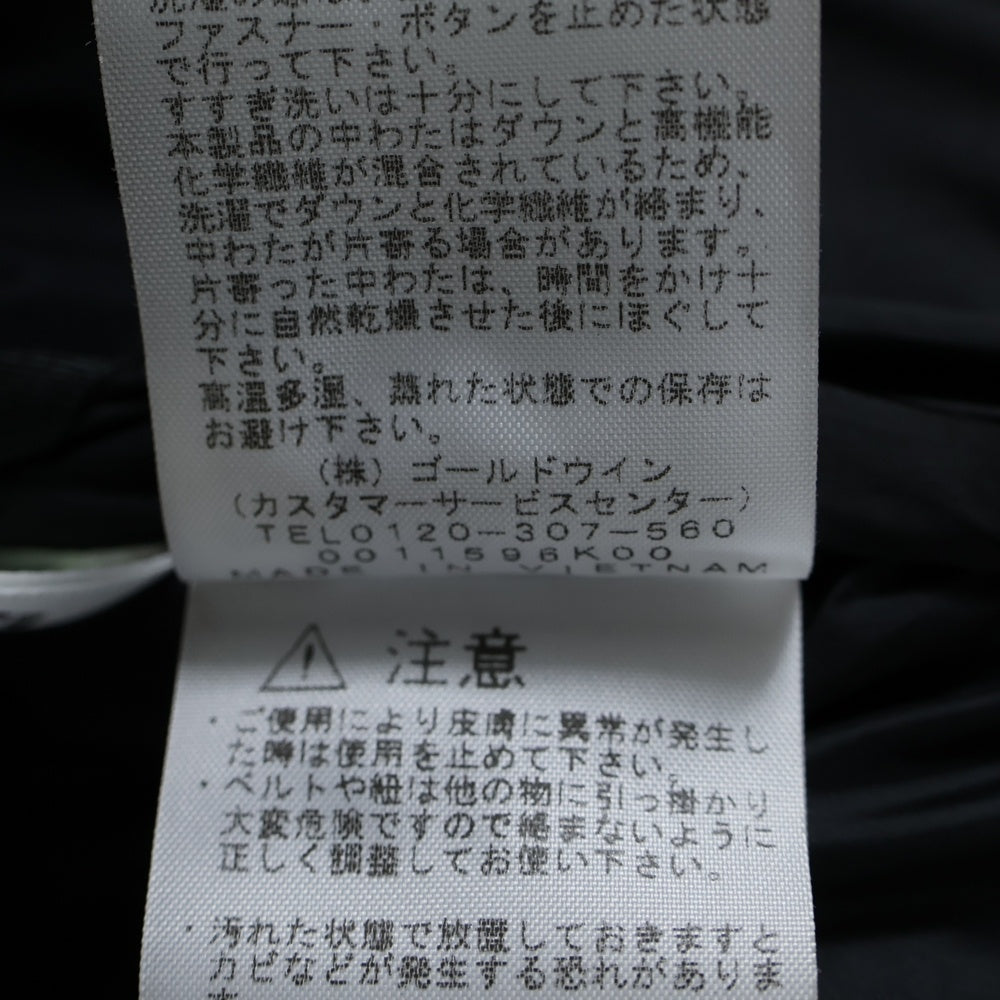 ファスナー・ボタンを止めた状態
で行って下さい。
すすぎ洗いは十分にして下さい。
本製品の中わたはダウンと高機能
化学繊維が混合されているため、
洗濯でダウンと化学繊維が絡まり、
中わたが片寄る場合があります。
片寄った中わたは、時間をかけ十
分に自然乾燥させた後にほぐして
下さい。
高温多湿、蒸れた状態での保存は
お避け下さい。
(株)ゴールドウイン
(カスタマーサービスセンター)
TEL0120-307-560
0011596K00
MADE IN VIETNAM
注意
・ご使用により皮膚に異常が発生し
た時は使用を止めて下さい。
・ベルトや紐は他の物に引っ掛かり
大変危険ですので絡まないように
正しく調整してお使い下さい。
・汚れた状態で放置しておきますと
カビなどが発生する恐れがありま